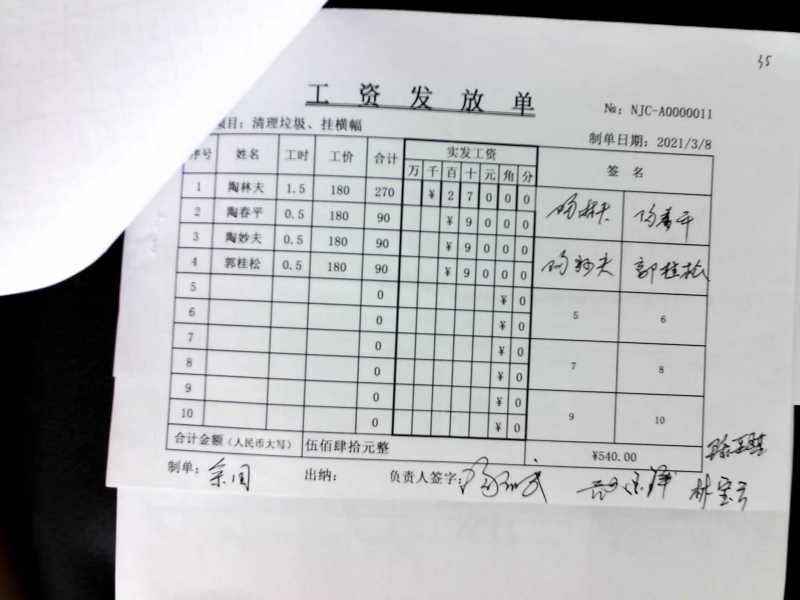 35
工资发放单
№: NJC-A0000011
项目：清理垃圾、挂横幅
制单日期：2021/3/8
序号 姓名 工时 工价 合计 实发工资 签名
万 千 百 十 元 角 分
1 陶林夫 1.5 180 270 ¥ 2 7 0 0 0 陶林夫 陶春平
2 陶春平 0.5 180 90 ¥ 9 0 0 0
3 陶妙夫 0.5 180 90 ¥ 9 0 0 0 陶妙夫 郭桂松
4 郭桂松 0.5 180 90 ¥ 9 0 0 0
5 0 ¥ 0 5 6
6 0 ¥ 0
7 0 ¥ 0 7 8
8 0 ¥ 0
9 0 ¥ 0 9 10
10 0 ¥ 0
合计金额（人民币大写） 伍佰肆拾元整 ¥540.00
制单： 出纳： 负责人签字：